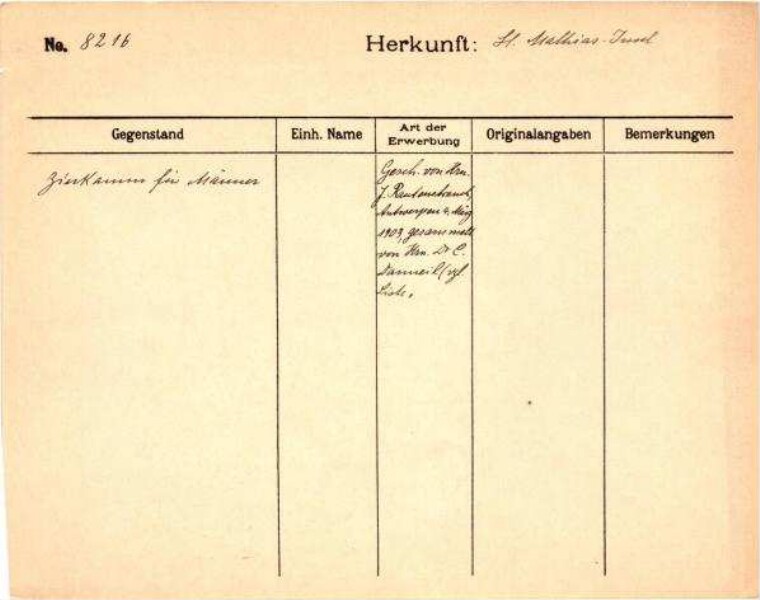 No. 8216
Herkunft: St. Mathias-Insel
Gegenstand
Einh. Name
Art der
Erwerbung
Originalangaben
Bemerkungen
Zierkamm für Männer
Gesch. von Hrn.
J.
Antwerpen
1903, gesammelt
von Hrn. Dr C.
Danneil (vgl.
Liste.